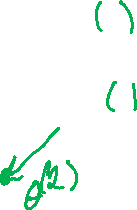 ( )
( )
θ(2)